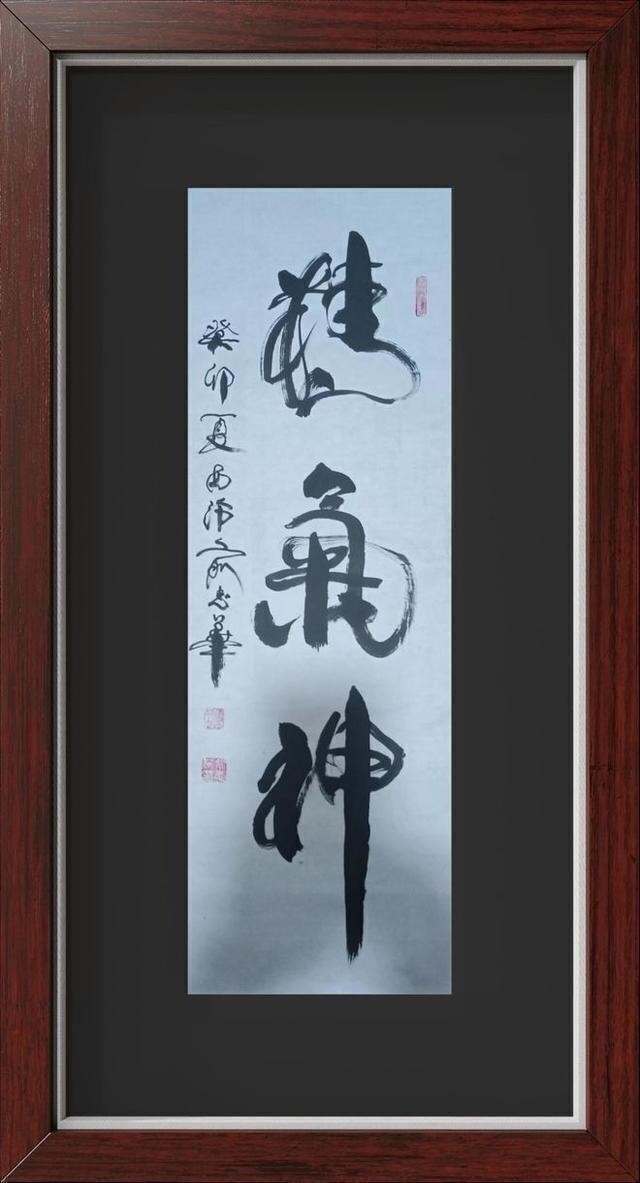 精氣神
癸卯夏西沛俞志華